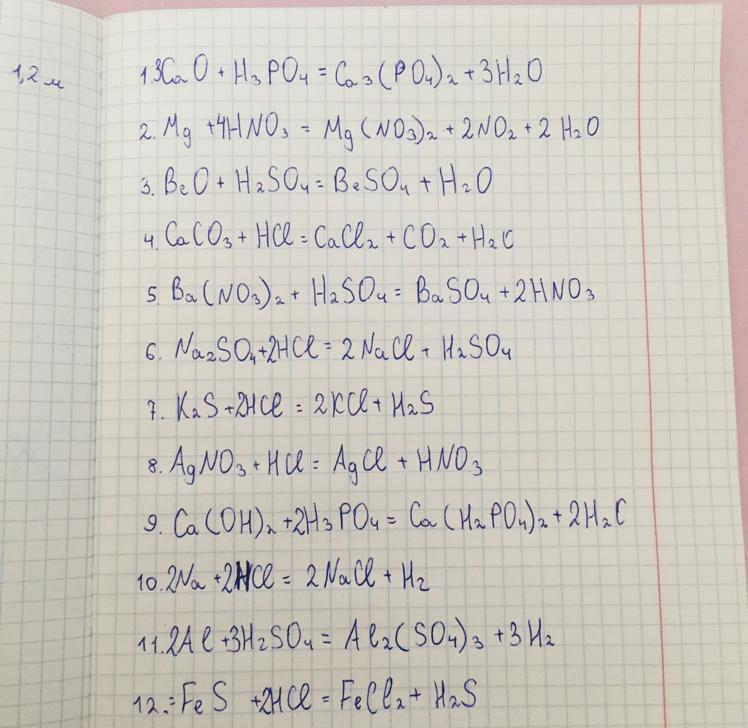 1,2 м
1. 3CaO + H₃PO₄ = Ca₃(PO₄)₂ + 3H₂O
2. Mg + 4HNO₃ = Mg(NO₃)₂ + 2NO₂ + 2H₂O
3. BeO + H₂SO₄ = BeSO₄ + H₂O
4. CaCO₃ + HCl = CaCl₂ + CO₂ + H₂C
5. Ba(NO₃)₂ + H₂SO₄ = BaSO₄ + 2HNO₃
6. Na₂SO₄ + 2HCl = 2NaCl + H₂SO₄
7. K₂S + 2HCl = 2KCl + H₂S
8. AgNO₃ + HCl = AgCl + HNO₃
9. Ca(OH)₂ + 2H₃PO₄ = Ca(H₂PO₄)₂ + 2H₂C
10. 2Na + 2HCl = 2NaCl + H₂
11. 2Al + 3H₂SO₄ = Al₂(SO₄)₃ + 3H₂
12. FeS + 2HCl = FeCl₂ + H₂S